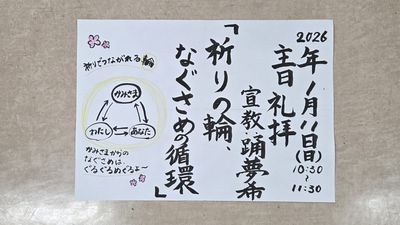 2026
年1月11日(日)
10:30
~
11:30
主日礼拝
宣教:踊夢希
「祈りの輪、
なぐさめの循環」
祈りでつながれる輪
かみさま
わたし
あなた
かみさまからの
なぐさめは、
ぐるぐるめぐるよ〜